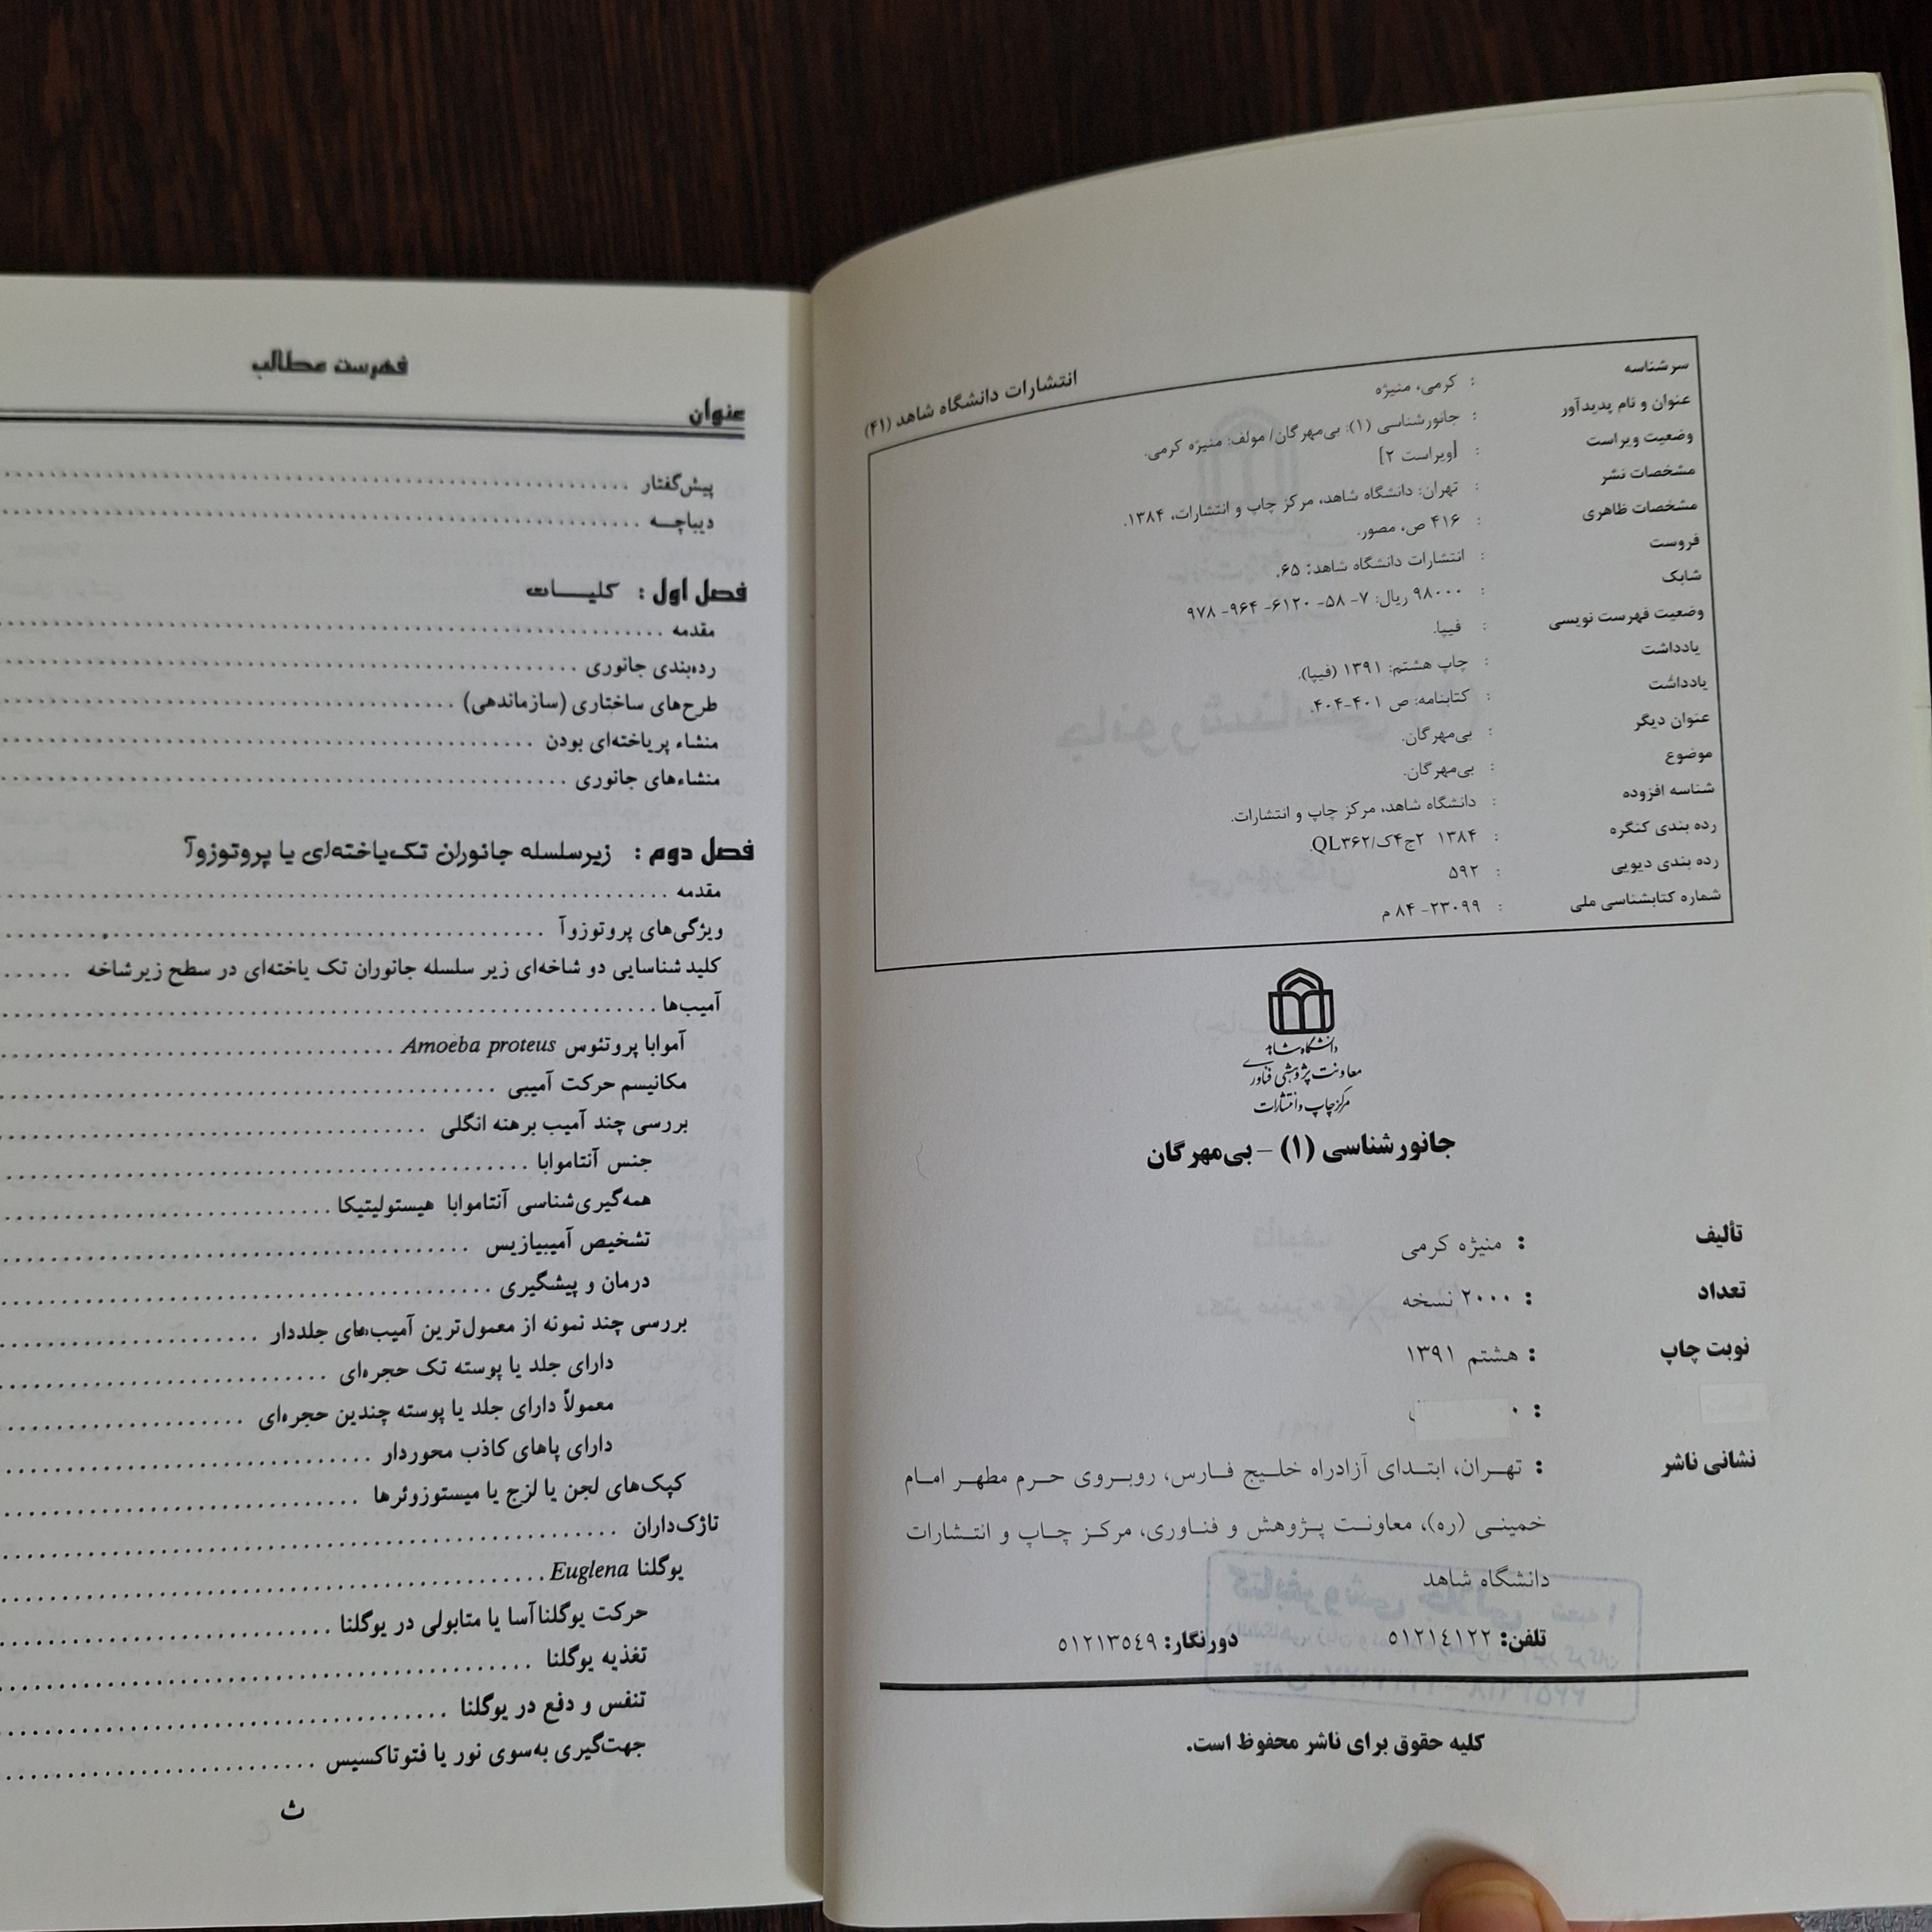 انتشارات دانشگاه شاهد (۴۱)
سرشناسه : کرمی، منیژه
عنوان و نام پدیدآور : جانورشناسی (۱): بی‌مهرگان/ مولف: منیژه کرمی.
وضعیت ویراست : [ویراست ۲]
مشخصات نشر : تهران: دانشگاه شاهد، مرکز چاپ و انتشارات، ۱۳۸۴.
مشخصات ظاهری : ۴۱۶ ص، مصور.
فروست : انتشارات دانشگاه شاهد؛ ۶۵.
شابک : ۹۸۰۰۰ ریال: ۷- ۵۸- ۶۱۲۰- ۹۶۴- ۹۷۸
وضعیت فهرست نویسی : فیپا.
یادداشت : چاپ هشتم: ۱۳۹۱ (فیپا).
یادداشت : کتابنامه: ص ۴۰۱-۴۰۴.
عنوان دیگر : بی‌مهرگان.
موضوع : بی‌مهرگان.
شناسه افزوده : دانشگاه شاهد، مرکز چاپ و انتشارات.
رده بندی کنگره : ۱۳۸۴ ۲ج۴ک/QL۳۶۲.
رده بندی دیویی : ۵۹۲
شماره کتابشناسی ملی : ۲۳۰۹۹- ۸۴ م
دانشگاه شاهد
معاونت پژوهشی فناوری
مرکز چاپ و انتشارات
جانورشناسی (۱) – بی‌مهرگان
تألیف : منیژه کرمی
تعداد : ۲۰۰۰ نسخه
نوبت چاپ : هشتم ۱۳۹۱
نشانی ناشر : تهـــران، ابتـــدای آزادراه خلـــیج فـــارس، روبـــروی حـــرم مطهـــر امـــام
خمینـی (ره)، معاونـت پـژوهش و فنـاوری، مرکـز چـاپ و انتـشارات
دانشگاه شاهد
تلفن: ٥١٢١٤١٢٢ دورنگار: ٥١٢١٣٥٤٩
کلیه حقوق برای ناشر محفوظ است.
فهرست مطالب
عنوان
پیش‌گفتار
دیباچـــه
فصل اول : کلیـــــات
مقدمه
رده‌بندی جانوری
طرح‌های ساختاری (سازماندهی)
منشاء پریاخته‌ای بودن
منشاءهای جانوری
فصل دوم : زیرسلسله جانوران تک‌یاخته‌ای یا پروتوزوآ
مقدمه
ویژگی‌های پروتوزوآ
کلید شناسایی دو شاخه‌ای زیر سلسله جانوران تک یاخته‌ای در سطح زیرشاخه
آمیب‌ها
آموابا پروتئوس Amoeba proteus
مکانیسم حرکت آمیبی
بررسی چند آمیب برهنه انگلی
جنس آنتاموابا
همه‌گیری‌شناسی آنتاموابا هیستولیتیکا
تشخیص آمیبیازیس
درمان و پیشگیری
بررسی چند نمونه از معمول‌ترین آمیب‌های جلددار
دارای جلد یا پوسته تک حجره‌ای
معمولاً دارای جلد یا پوسته چندین حجره‌ای
دارای پاهای کاذب محوردار
کپک‌های لجن یا لزج یا میستوزوئرها
تاژک‌داران
یوگلنا Euglena
حرکت یوگلناآسا یا متابولی در یوگلنا
تغذیه یوگلنا
تنفس و دفع در یوگلنا
جهت‌گیری به‌سوی نور یا فتوتاکسیس
ث